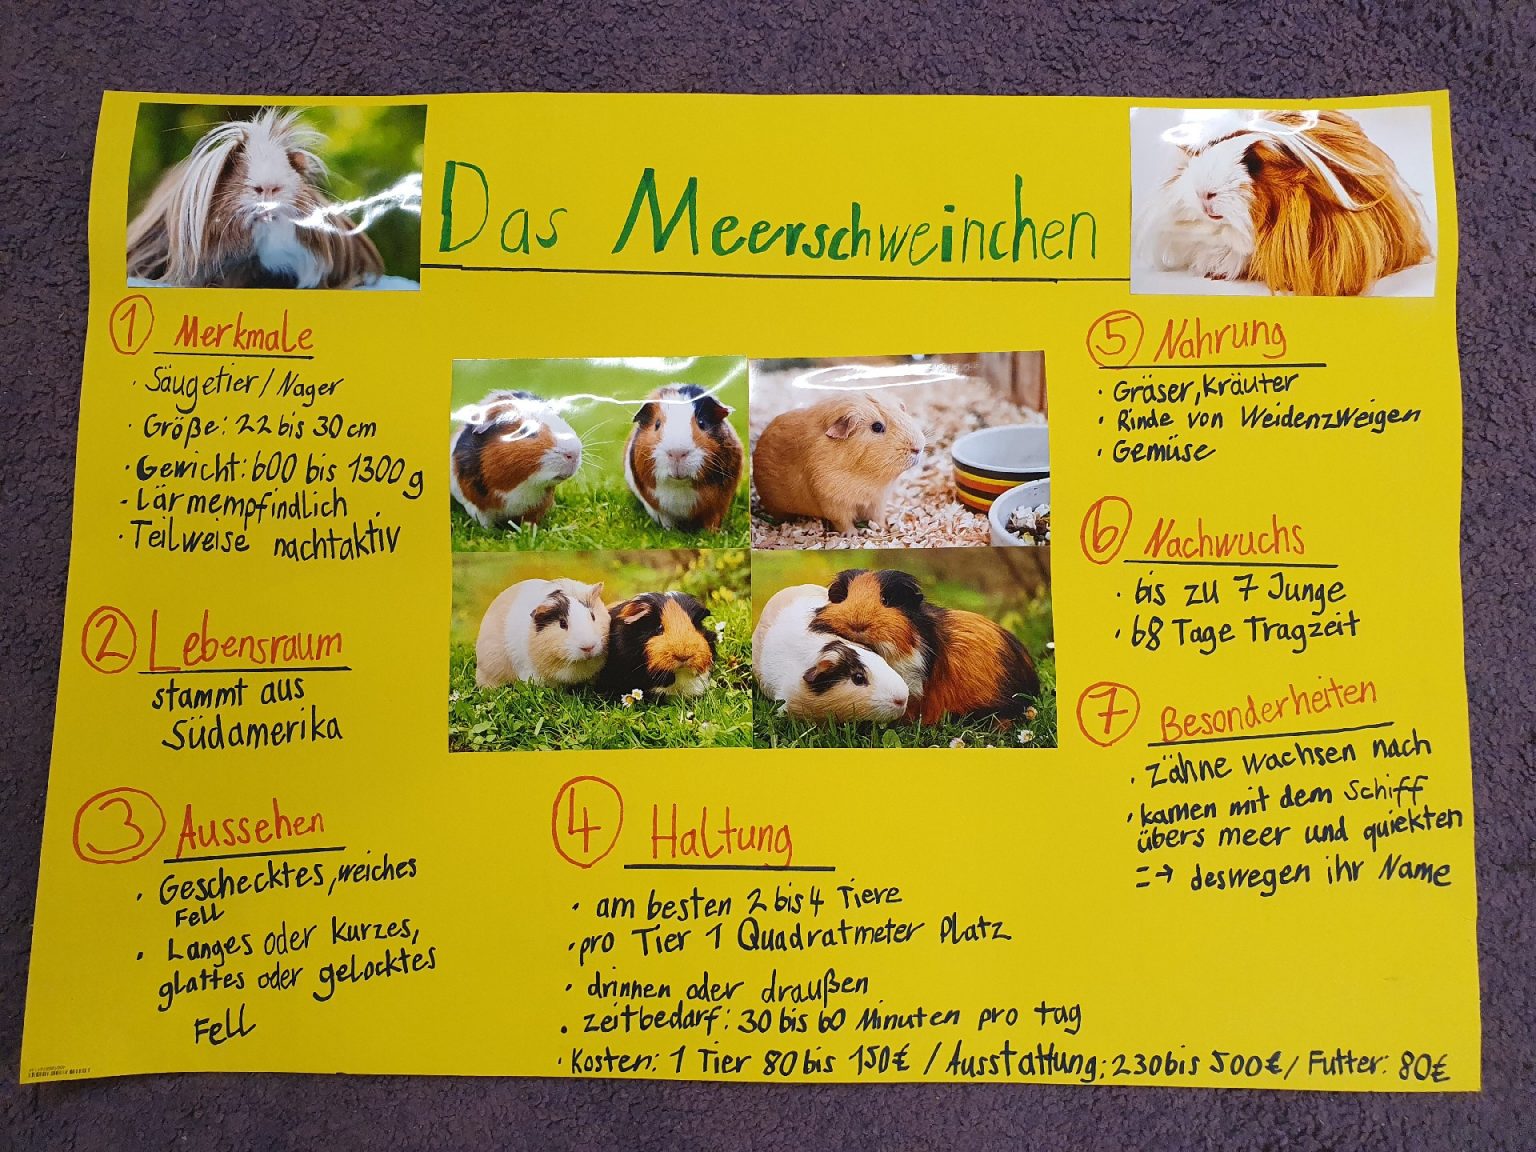 Das Meerschweinchen
① Merkmale
· Säugetier / Nager
· Größe: 22 bis 30 cm
· Gewicht: 600 bis 1300 g
· Lärmempfindlich
· Teilweise nachtaktiv
② Lebensraum
stammt aus
Südamerika
③ Aussehen
· Geschecktes, weiches
Fell
· Langes oder kurzes,
glattes oder gelocktes
Fell
④ Haltung
· am besten 2 bis 4 Tiere
· pro Tier 1 Quadratmeter Platz
· drinnen oder draußen
· Zeitbedarf: 30 bis 60 Minuten pro tag
· Kosten: 1 Tier 80 bis 150€ / Ausstattung: 230 bis 500€ / Futter: 80€
⑤ Nahrung
· Gräser, Kräuter
· Rinde von Weidenzweigen
· Gemüse
⑥ Nachwuchs
· bis zu 7 Junge
· 68 Tage Tragzeit
⑦ Besonderheiten
· Zähne wachsen nach
· kamen mit dem Schiff
übers meer und quiekten
=> deswegen ihr Name